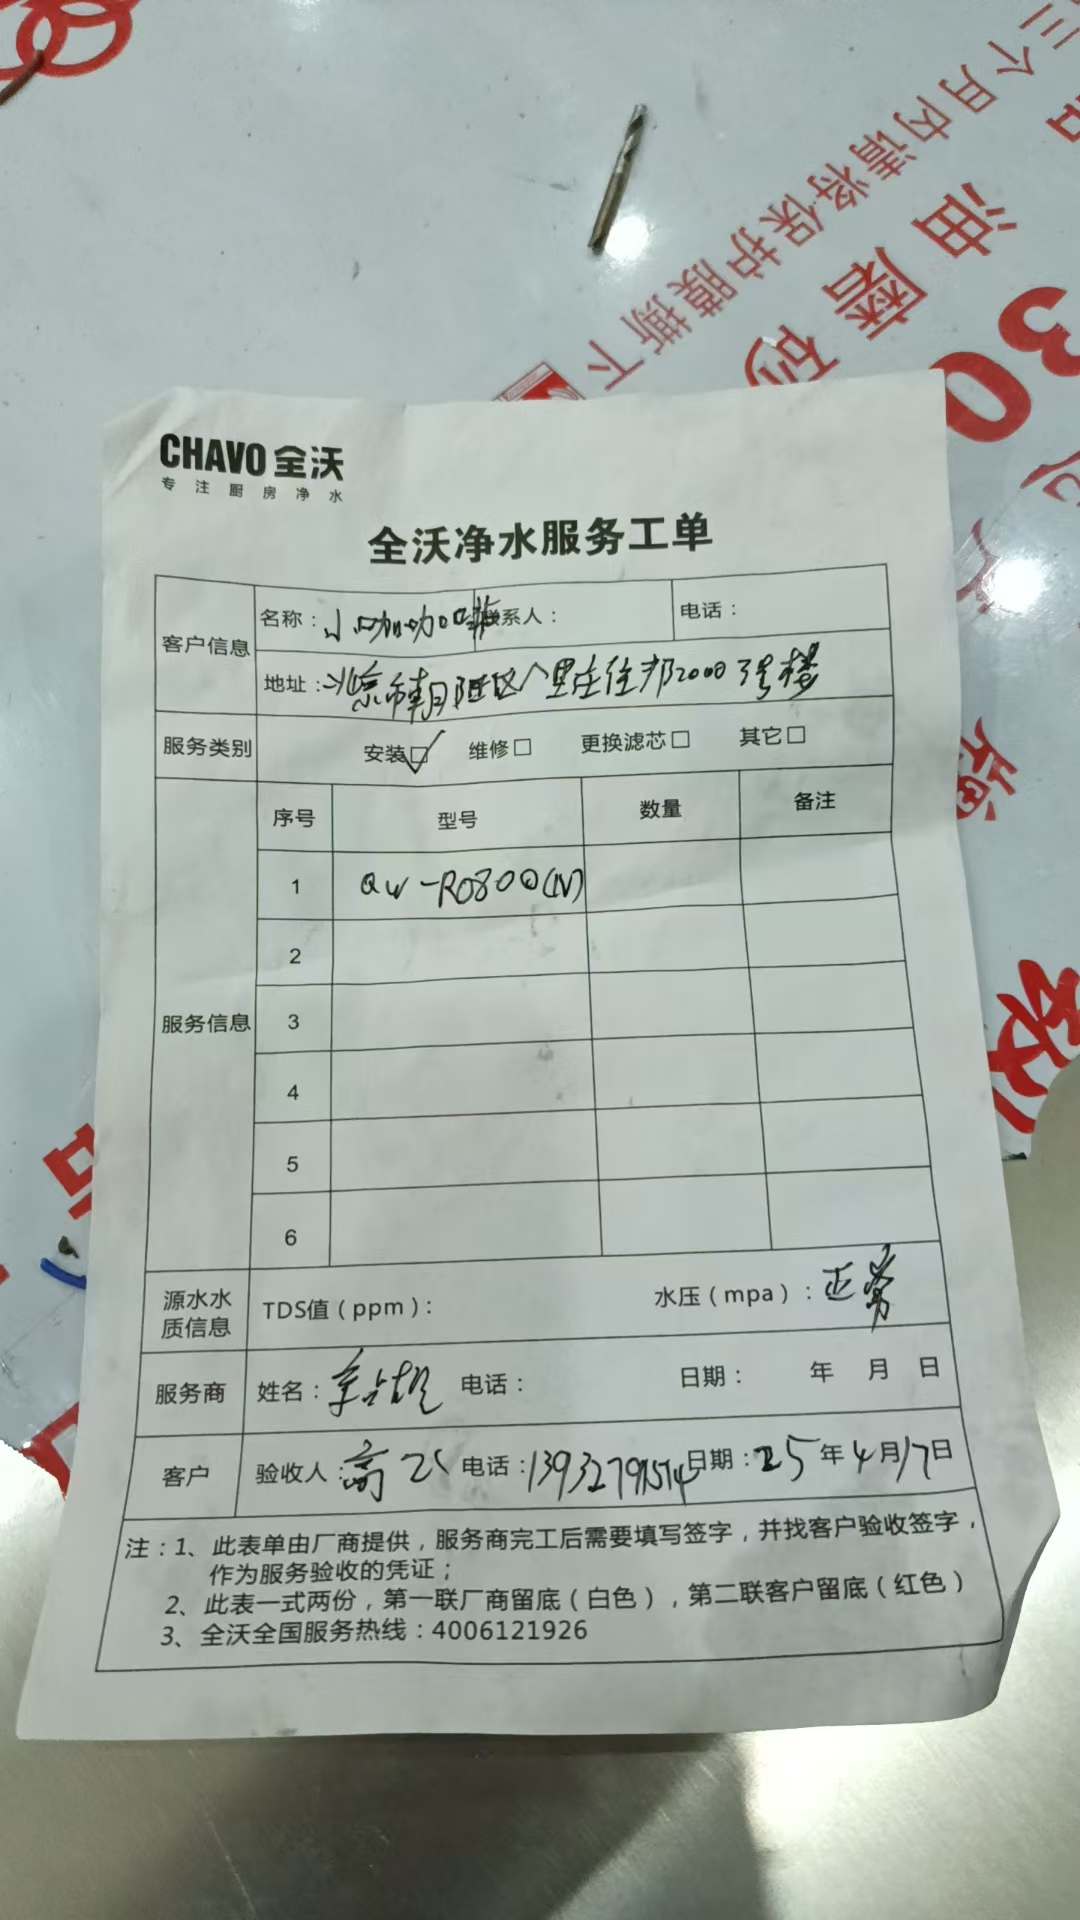 三个月内请将保护膜撕下
油磨砂
30
CHAVO 全沃
专注厨房净水
全沃净水服务工单
客户信息 名称：小咖咖啡 联系人： 电话：
地址：北京市朝阳区八里庄住邦2000 3号楼
服务类别 安装☑ 维修□ 更换滤芯□ 其它□
服务信息 序号 型号 数量 备注
1 QW-RO800(N)
2
3
4
5
6
源水水质信息 TDS值（ppm）： 水压（mpa）：正常
服务商 姓名： 电话： 日期： 年 月 日
客户 验收人：高 电话： 日期：25年4月17日
注：1、此表单由厂商提供，服务商完工后需要填写签字，并找客户验收签字，
作为服务验收的凭证；
2、此表一式两份，第一联厂商留底（白色），第二联客户留底（红色）
3、全沃全国服务热线：4006121926